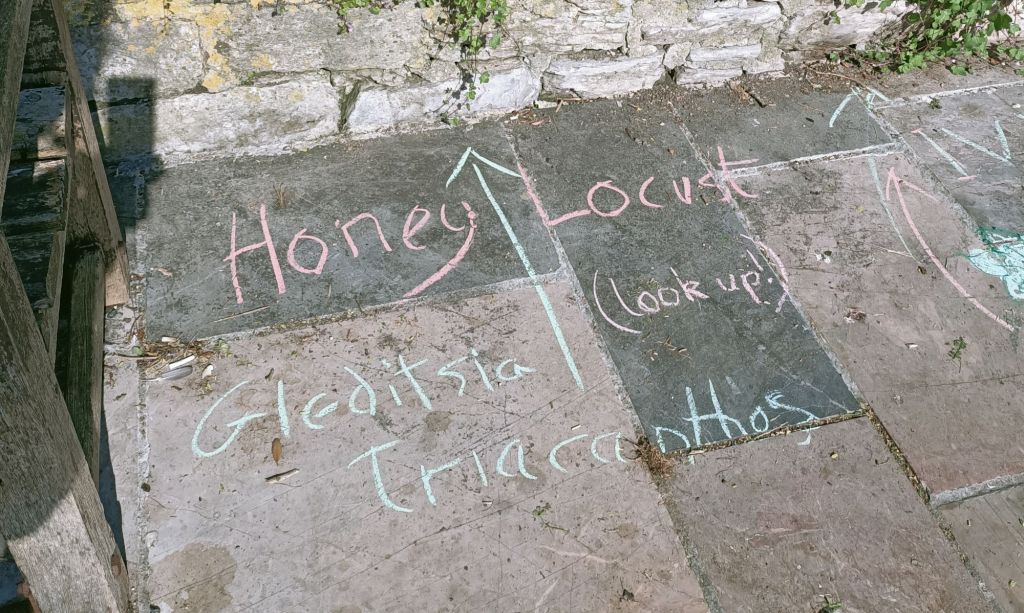 Honey Locust
(look up!)
Gleditsia
Triacanthos